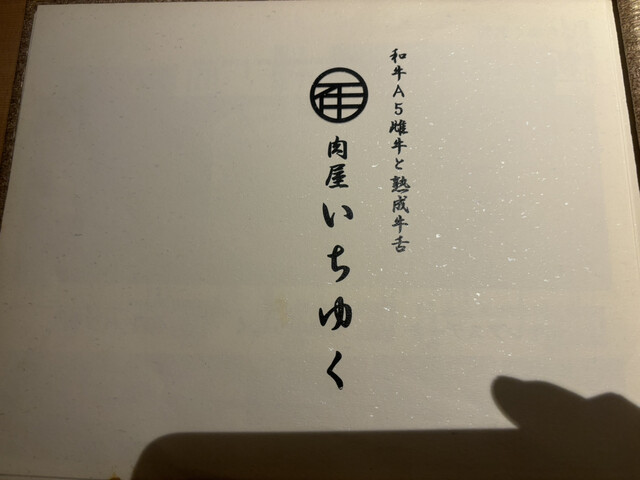 和牛A5雌牛と熟成牛舌
肉屋いちゆく